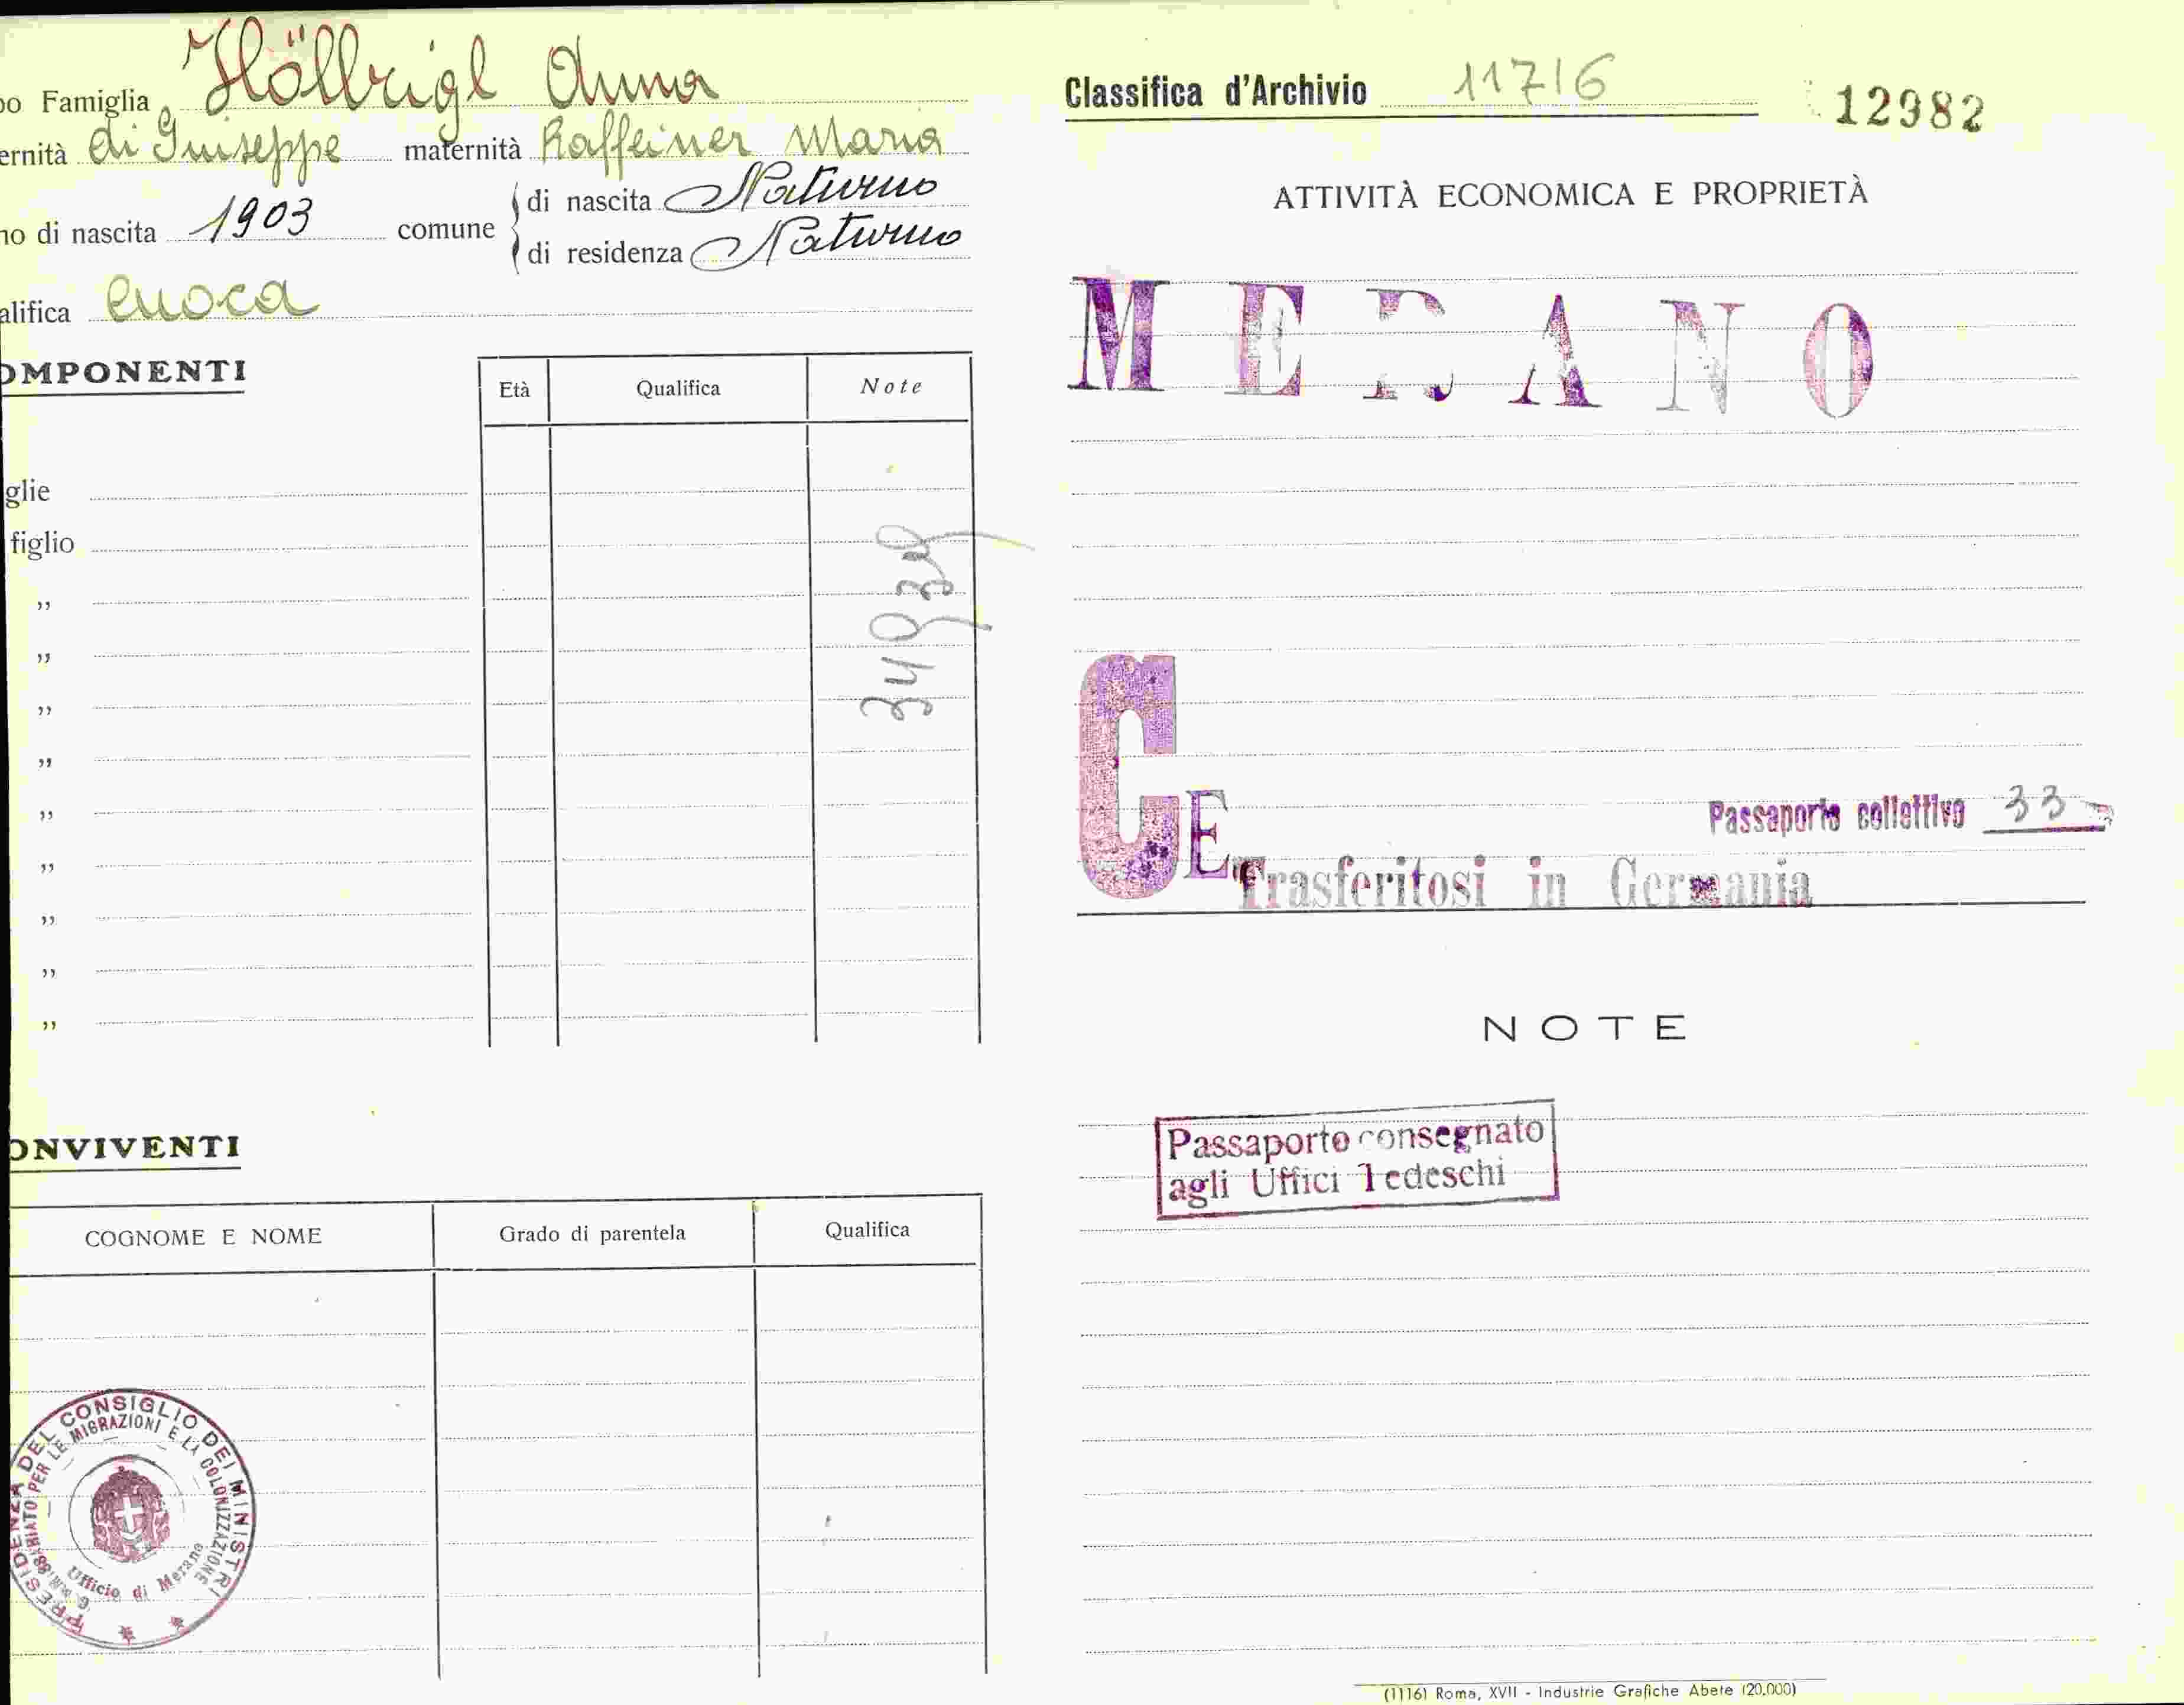 po Famiglia Höllrigl Anna
ernità di Guiseppe maternità Raffeiner Maria
no di nascita 1903 comune
di nascita Naturno
di residenza Naturno
alifica cuoca
OMPONENTI
Età Qualifica Note
glie
figlio
"
"
"
"
"
"
"
"
"
ONVIVENTI
COGNOME E NOME Grado di parentela Qualifica
PRESIDENZA DEL CONSIGLIO DEI MINISTRI
COMMISSARIATO PER LE MIGRAZIONI E LA COLONIZZAZIONE
Ufficio di Merano
Classifica d'Archivio 11716
12982
ATTIVITÀ ECONOMICA E PROPRIETÀ
MERANO
C
E
Passaporto collettivo 33
Trasferitosi in Germania
NOTE
Passaporto consegnato
agli Uffici Tedeschi
(1116) Roma, XVII - Industrie Grafiche Abete (20.000)